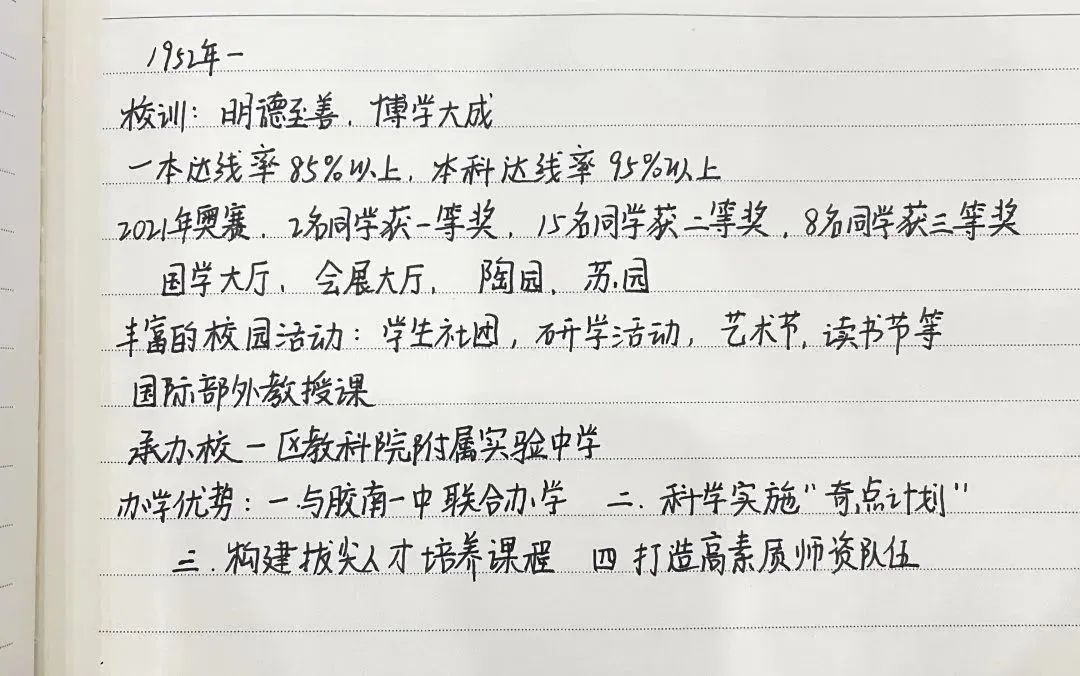 1952年一
校训：明德至善，博学大成
一本达线率85%以上，本科达线率95%以上
2021年奥赛，2名同学获一等奖，15名同学获二等奖，8名同学获三等奖
国学大厅、会展大厅、陶园、苏园
丰富的校园活动：学生社团，研学活动，艺术节，读书节等
国际部外教授课
承办校一区教科院附属实验中学
办学优势：一.与胶南一中联合办学 二.科学实施"奇点计划"
三.构建拔尖人才培养课程 四 打造高素质师资队伍